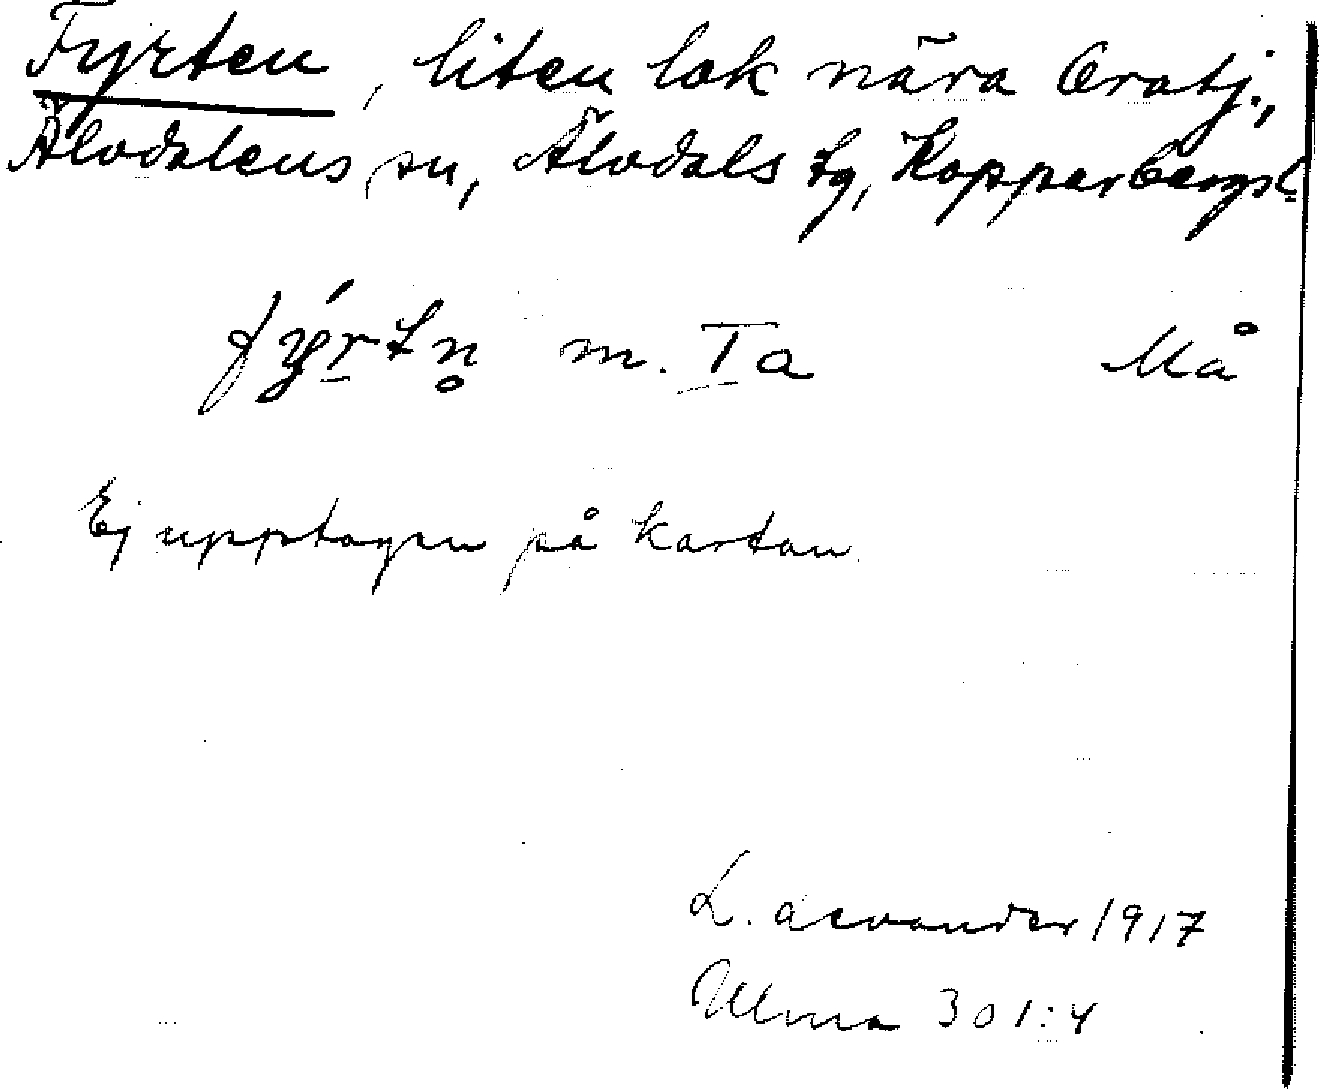 Fyrten, liten lok nära Oratj.,
Älvdalens sn, Älvdals tg, Kopparbergs l.
fýrtn̥ m. Ia Må
Ej upptagen på kartan.
L. Levander 1917
Ulma 301:4